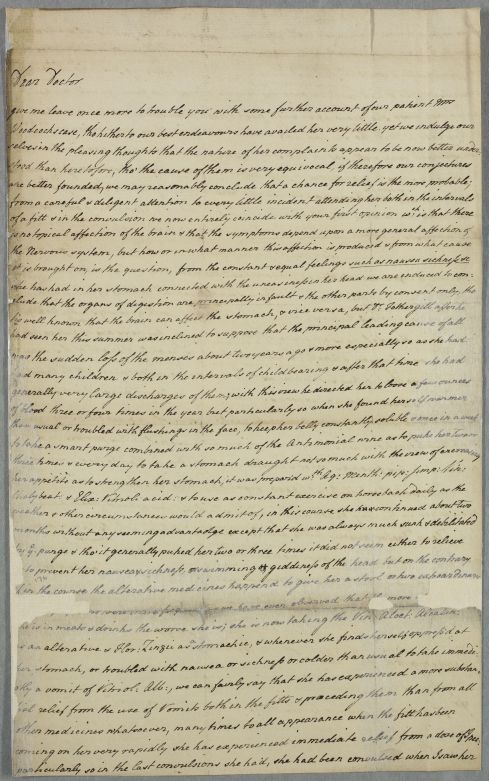 Dear Doctor
give me leave once more to trouble you with some further account of our patient Mrs
Woodcocks case, tho hitherto our best endeavours have availed her very little, yet we indulge our
selves in the pleasing thoughts that the nature of her complaints appear to be now better under
stood than heretofore, tho' the cause of them is very equivocal, if therefore our conjectures
are better founded, we may reasonably conclude that a chance for relief is the more probable;
from a careful & diligent attention to every little incident attending her both in the intervals
of a fitt & in the convulsion we now entirely coincide with your first opinion wch is that there
is no topical affection of the brain & that the symptoms depend upon a more general affection of
the Nervous system, but how or in what manner this affection is produced & from what cause
it is brought on, is the question, from the constant & equal feelings such as nausea sickness &c
she has had in her stomach connected with the uneasiness in her head we are induced to con
clude that the organs of digestion are principally in fault & the other parts by consent only, tho
tis well known that the brain can affect the stomach, & vice versa, but Dr Fothergill after he
had seen her this summer was inclined to suppose that the principal leading cause of all
was the sudden loss of the menses about two years ago & more especially so as she had
had many children & both in the intervals of childbearing & after that time she had
generally very large discharges of them; with this view he directed her to lose a few ounces
of blood three or four times in the year but particularly so when she found herself warmer
than usual or troubled with flushings in the face, to keep her belly constantly soluble & once in a week
to take a smart purge combined with so much of the Antimonial wine as to puke her two or
three times & every day to take a stomach draught not so much with the view of encreasing
her appetite as to strengthen her stomach, it was prepar'd wth Aq: Menth: pip: simp: Vin:
Chalybeat: & Elix: Vitrioli acid: & to use as constant exercise on horseback daily as the
weather & other circumstances would admit of, in this course she has continued about two
months without any seeming advantadge except that she was always much sunk & debilitated
by ye purge & tho' it generally puked her two or three times it did not seem either to relieve
or to prevent her nausea, sickness, or swimming & giddiness of the head but on the contrary
when in the course the alterative medicines happend to give her a stool or two extraordinary
we have ever observed that ye more
she is in meats & drinks the worse she is; she is now taking the Vin. Aloet. Alcalin:
as an alterative & Flor: Zinzi as a stomachic, & whenever she finds herself oppress'd at
her stomach, or troubled with nausea or sickness or colder than usual to take immedi
ately a vomit of Vitriol. Alb:, we can fairly say that she has experienced a more substan
tial relief from the use of Vomits both in the fitts & preceeding them than from all
other medicines whatsoever, many times to all appearance when the fitt has been
coming on her very rapidly she has experienced immediate relief from a dose of Ipec:
particularly so in the last convulsions she had, she had been convulsed when I saw her